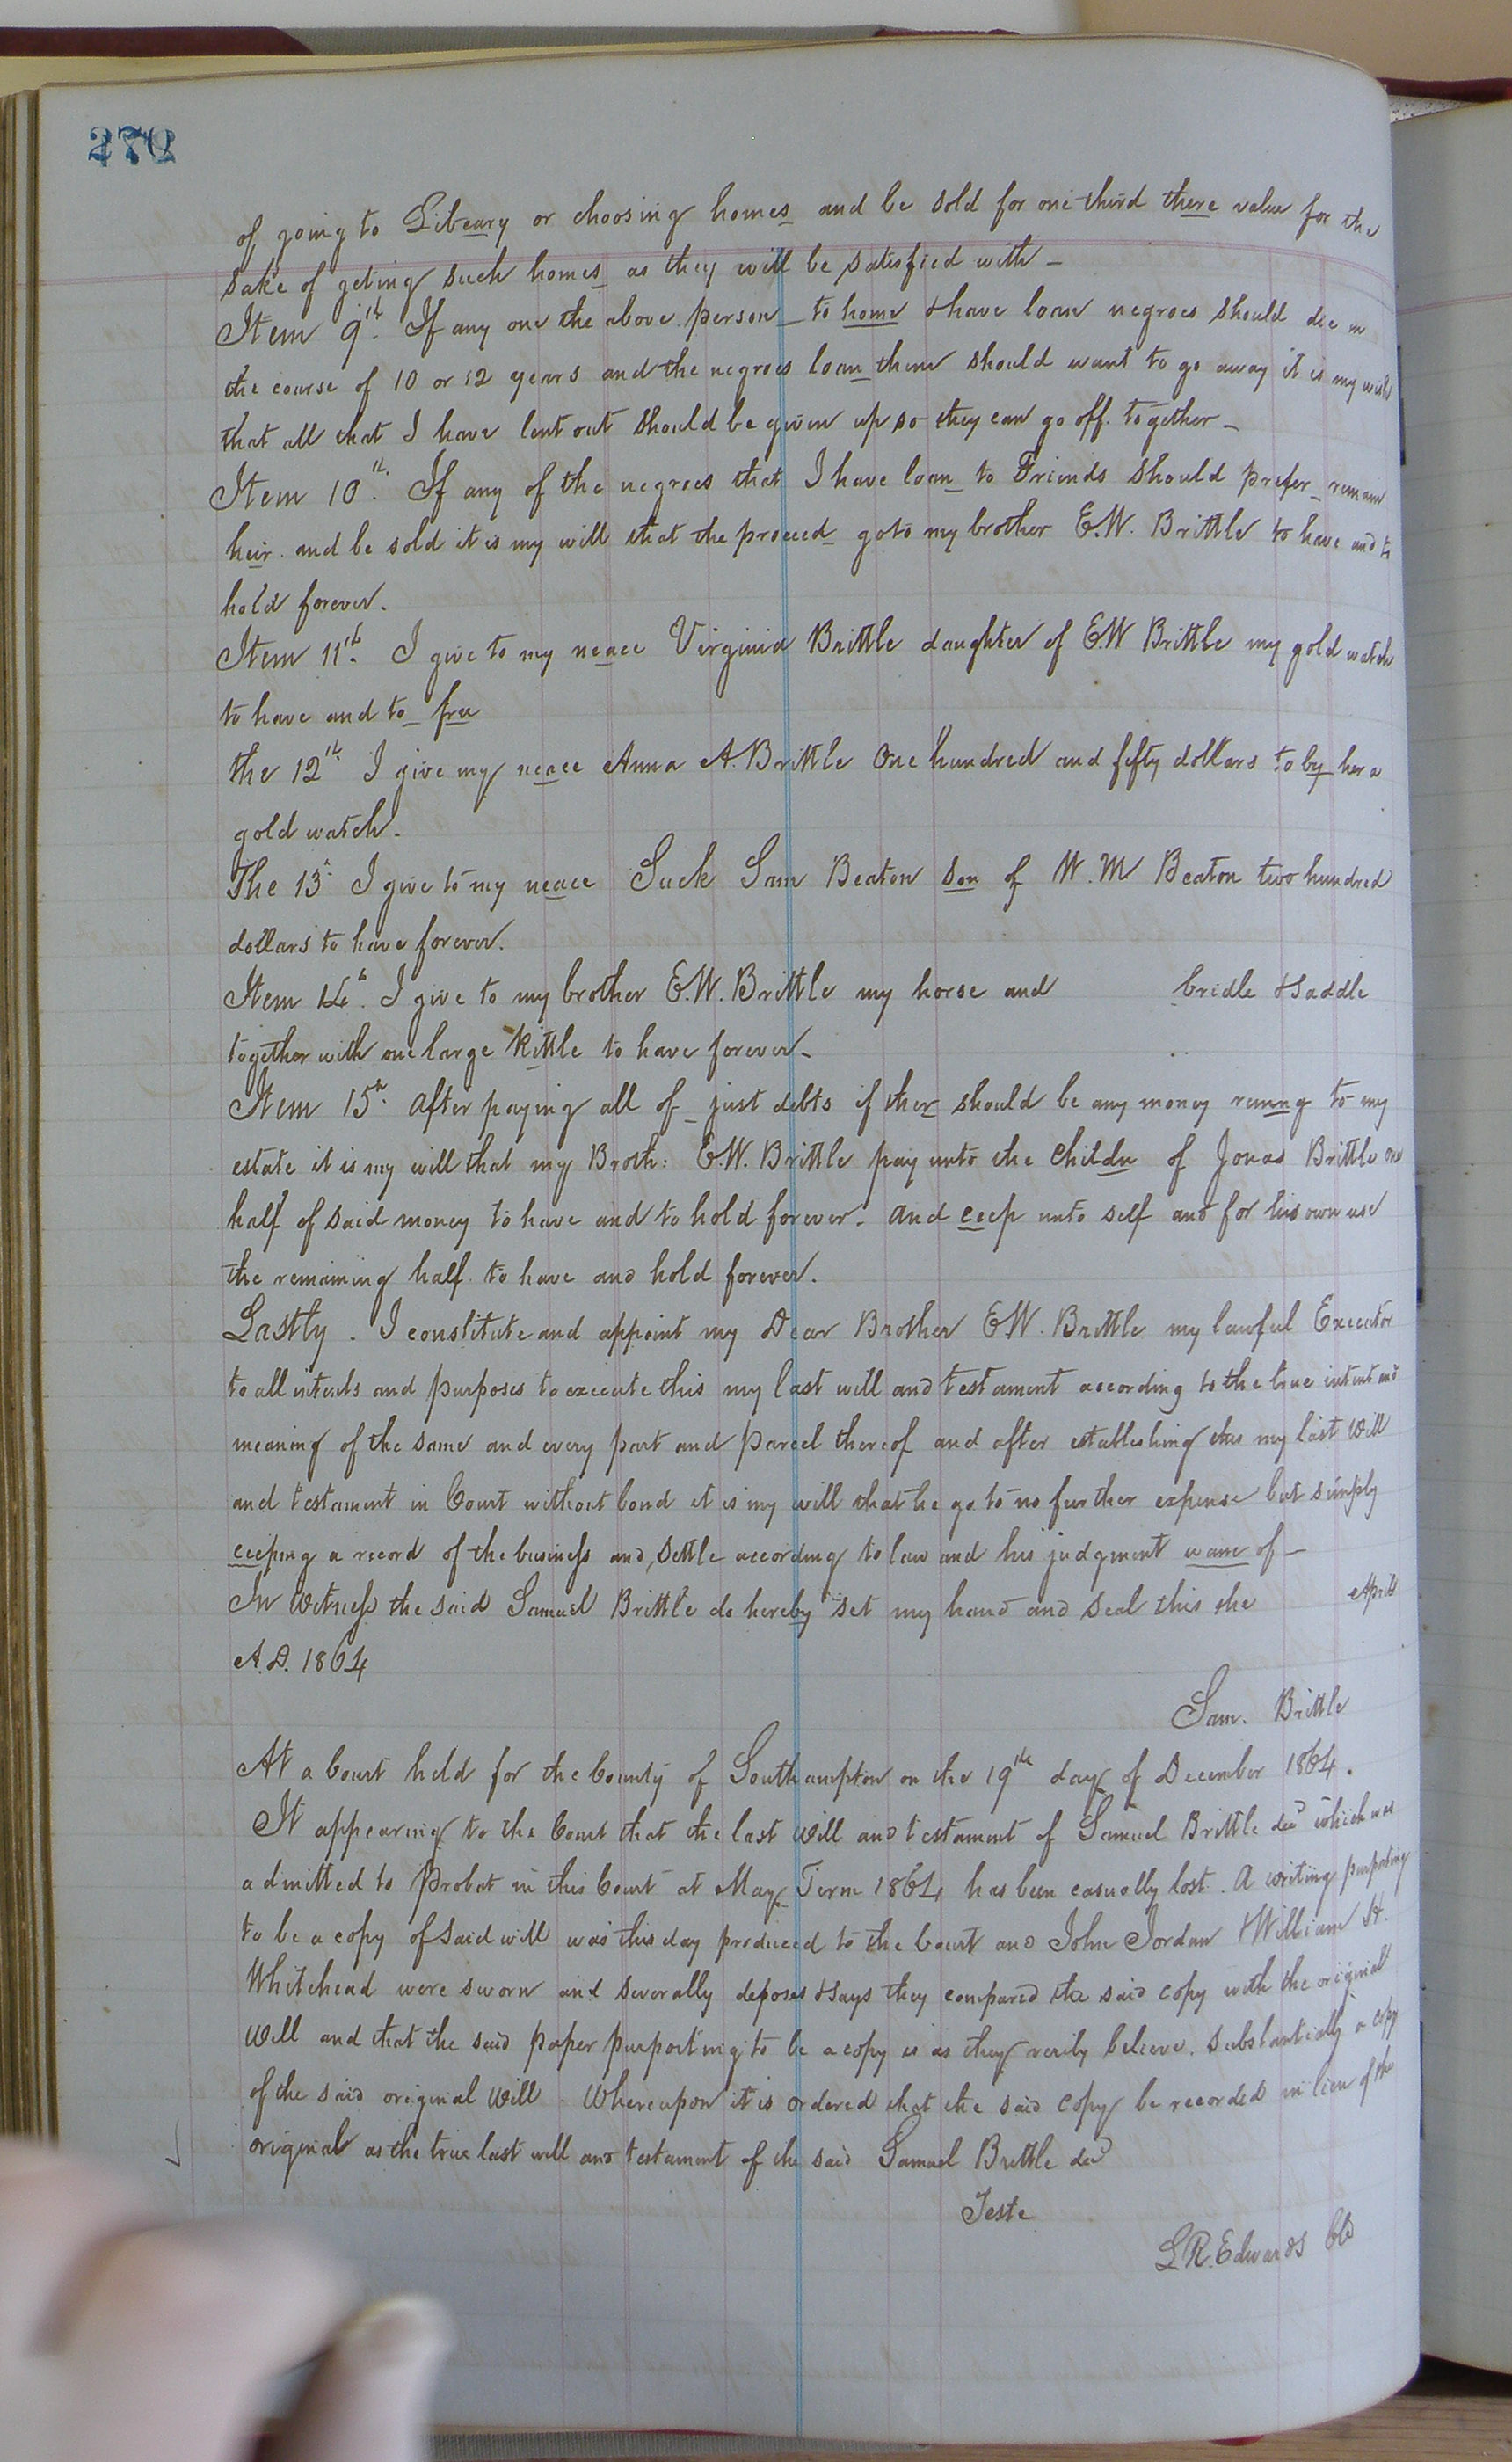 270
of going to Libeary or choosing homes and be sold for one third there value for the
sake of geting such homes as they will be satisfied with –
Item 9th. If any one the above person to home & have loan negroes should die in
the course of 10 or 12 years and the negroes loan them should want to go away it is my will
that all that I have lent out should be given up so they can go off together –
Item 10th. If any of the negroes that I have loan to Friends should prefer remain
heir and be sold it is my will that the proceed go to my brother E.W. Brittle to have and to
hold forever.
Item 11th. I give to my neace Virginia Brittle daughter of E.W Brittle my gold watch
to have and to free
the 12th I give my neace Anna A. Brittle One hundred and fifty dollars to by her a
gold watch.
The 13th I give to my neace Suck Sam Beaton Son of W. M Beaton two hundred
dollars to have forever.
Item 14th. I give to my brother E.W. Brittle my horse and bridle & Saddle
together with one large Kittle to have forever –
Item 15th. After paying all of just debts if ther should be any money remng to my
estate it is my will that my Broth: E.W. Brittle pay unto the Childn of Jonas Brittle one
half of said money to have and to hold forever. and ceep unto self and for his own use
the remaining half to have and hold forever.
Lastly. I constitute and appoint my Dear Brother E.W. Brittle my lawful Executor
to all intents and purposes to execute this my last will and testament according to the true intent and
meaning of the same and every part and parcel thereof and after establishing this my last Will
and testament in Court without bond it is my will that he go to no further expense but simply
ceeping a record of the business and settle according to law and his judgment wane of –
In Witness the said Samuel Brittle do hereby set my hand and seal this the April
A.D. 1864
Sam. Brittle
At a Court held for the County of Southampton on the 19th day of December 1864.
It appearing to the Court that the last Will and testament of Samuel Brittle decd which was
admitted to Probat in this Court at May Term 1864 has been casually lost. A writing purporting
to be a copy of said will was this day produced to the Court and John Jordan & William H.
Whitehead were sworn and severally deposes & says they compared the said copy with the original
Will and that the said paper purporting to be a copy is as they verily believe. substantially a copy
of the said original Will. Whereupon it is ordered that the said Copy be recorded in lieu of the
original as the true last will and testament of the said Samuel Brittle decd
Teste
L.R. Edwards Clk